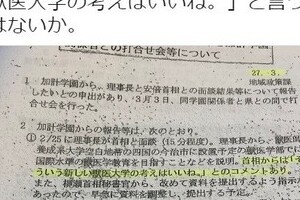 獣医大学の考えはいいね。」と言う
はないか。
関係者との打合せ会等について
27. 3.
地域政策課
1 加計学園から、理事長と安倍首相との面談結果等について報告
したいとの申出があり、3月3日、同学園関係者と県との間で打
合せ会を行った。
2 加計学園からの報告等は、次のとおり。
2/25に理事長が首相と面談(15分程度)。理事長から、獣医師
養成系大学空白地帯の四国の今治市に設置予定の獣医学部では
国際水準の獣医学教育を目指すことなどを説明。首相からは「そ
ういう新しい獣医大学の考えはいいね。」とのコメントあり。
また、柳瀬首相秘書官から、改めて資料を提出するよう指示